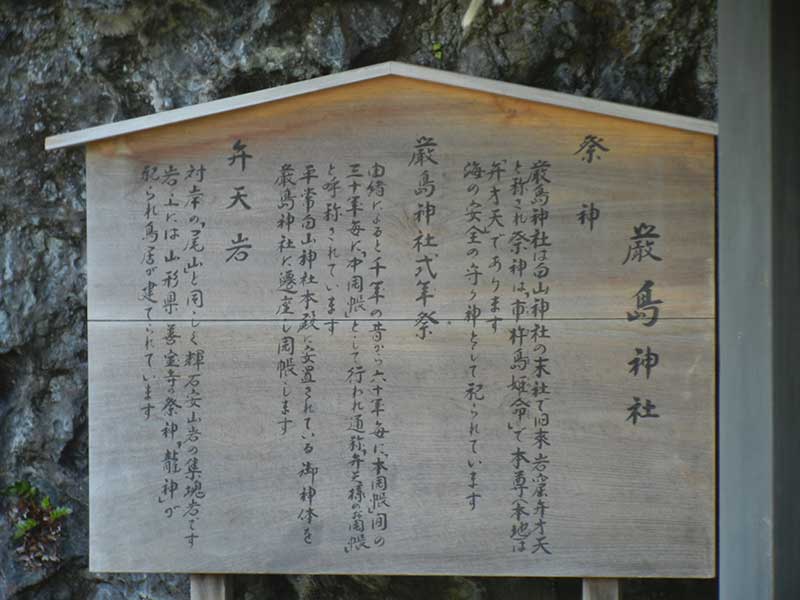 厳島神社
祭神
厳島神社は白山神社の末社で旧来岩窟弁才天
と称され祭神は「市杵島姫命」で本尊(本地)は
弁才天であります
海の安全の守り神として祀られています
厳島神社式年祭
由緒によると千年の昔から六十年毎に「本開帳」間の
三十年毎に「中開帳」として行われ通称「弁天様のお開帳」
と呼称されています
平常白山神社本殿に安置されている御神体を
厳島神社に遷座し開帳します
弁天岩
対岸の「尾山」と同じく輝石安山岩の集塊岩です
岩上には山形県善宝寺の祭神「龍神」が
祀られ鳥居が建てられています